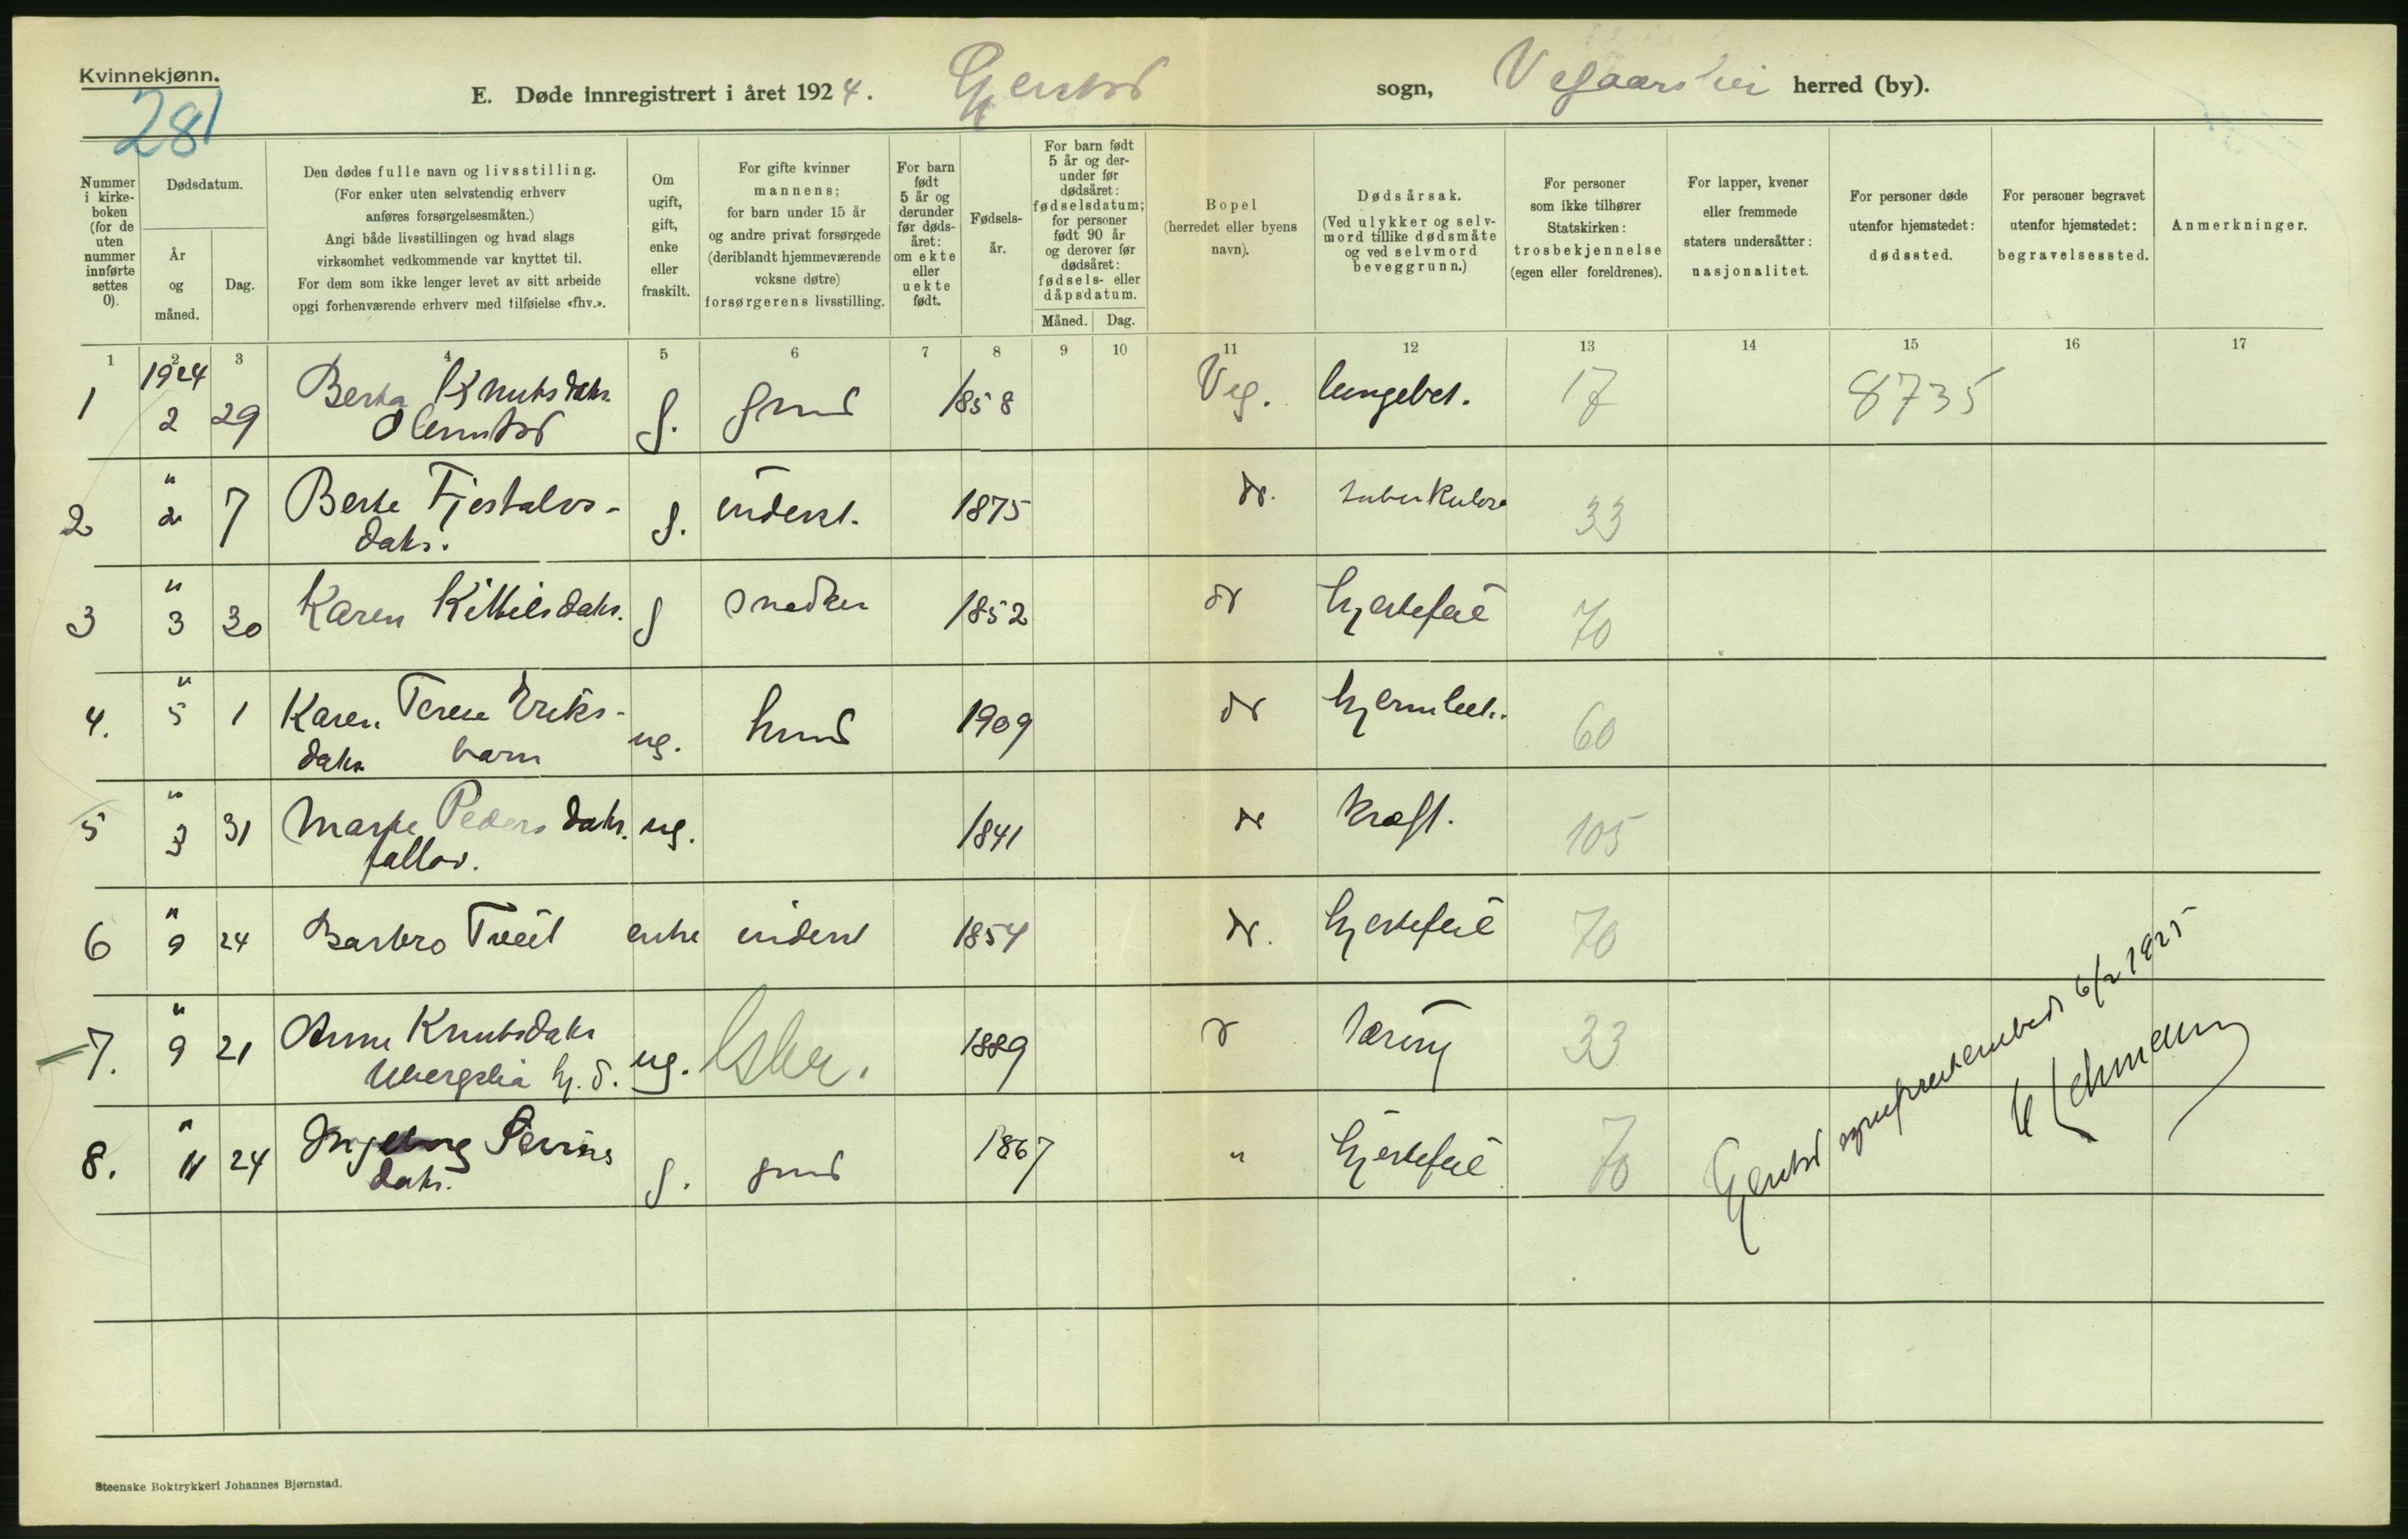 Kvinnekjønn.
281
E. Døde innregistrert i året 1924. Gjerstad sogn, Vegaarshei herred (by).
Nummer i kirkeboken (for de uten nummer innførte settes 0).
Dødsdatum.
År og måned.
Dag.
Den dødes fulle navn og livsstilling.
(For enker uten selvstendig erhverv
anføres forsørgelsesmåten.)
Angi både livsstillingen og hvad slags
virksomhet vedkommende var knyttet til.
For dem som ikke lenger levet av sitt arbeide
opgi forhenværende erhverv med tilføielse «fhv.».
Om ugift, gift, enke eller fraskilt.
For gifte kvinner
mannens;
for barn under 15 år
og andre privat forsørgede
(deriblandt hjemmeværende
voksne døtre)
forsørgerens livsstilling.
For barn født 5 år og derunder før dødsåret: om ekte eller uekte født.
Fødsels-
år.
For barn født 5 år og der-
under før dødsåret: fødselsdatum;
for personer født 90 år og derover før dødsåret:
fødsels- eller dåpsdatum.
Måned. Dag.
Bopel
(herredet eller byens
navn).
Dødsårsak.
(Ved ulykker og selv-
mord tillike dødsmåte
og ved selvmord
beveggrunn.)
For personer
som ikke tilhører
Statskirken:
trosbekjennelse
(egen eller foreldrenes).
For lapper, kvener
eller fremmede
staters undersåtter:
nasjonalitet.
For personer døde
utenfor hjemstedet:
dødssted.
For personer begravet
utenfor hjemstedet:
begravelsessted.
Anmerkninger.
1 2 3 4 5 6 7 8 9 10 11 12 13 14 15 16 17
1 1924 2 29 Berta Knutsdatr. g. grmd 1858 Veg. lungebet. 17 8735
2 " 2 7 Berte Fjestalvs-
datr. g. inderst. 1875 do. tuberkulose 33
3 " 3 30 Karen Kittilsdatr. g snedker 1852 do hjertefeil 70
4. " 5 1 Karen Terese Eriks-
datr barn ug. hmd 1909 do hjernbet. 60
5 " 3 31 Marte Pedersdatr. ug. 1841 do kræft. 105
6 " 9 24 Barbro Tveit enke inderst 1854 do. hjertefeil 70
7. " 9 21 Anne Knutsdatr
Ubergslia hj. d. ug. 1889 d tæring 33
8. " 11 24 Ingeborg
datr. g. grmd 1867 " hjertefeil 70
Gjerstad sogneprestembede 6/2 1925
Steenske Boktrykkeri Johannes Bjørnstad.